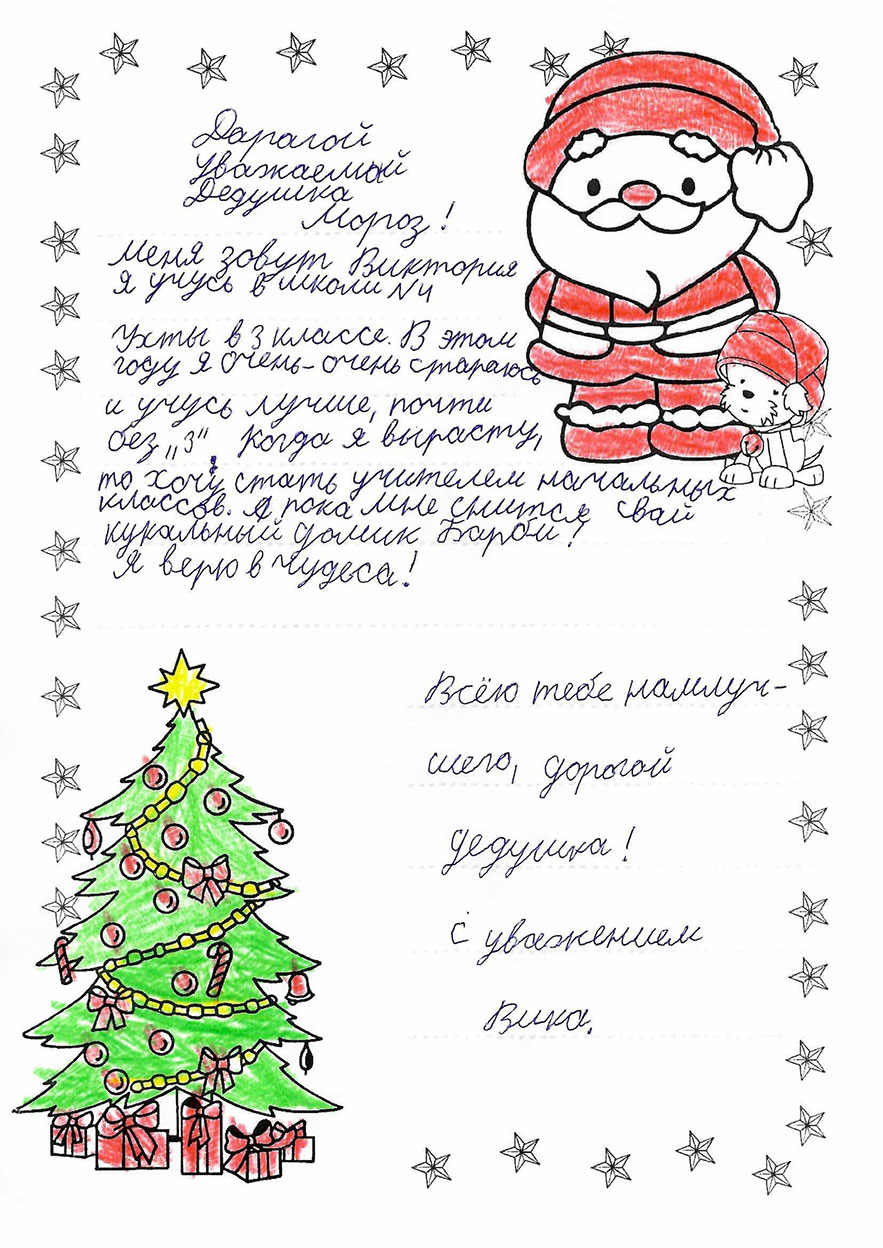 Дарагой
уважаемый
Дедушка
Мороз!
Меня зовут Виктория
я учусь в школи №4
Ухты в 3 классе. В этом
году я очень-очень стараюсь
и учусь лучше, почти
без „3" Когда я вырасту,
то хочу стать учителем начальных
классов. А пока мне снится свай
кукальный домик Барби!
Я верю в чудеса!
Всёго тебе наилуч-
шего, дорогой
Дедушка!
С уважением
Вика.